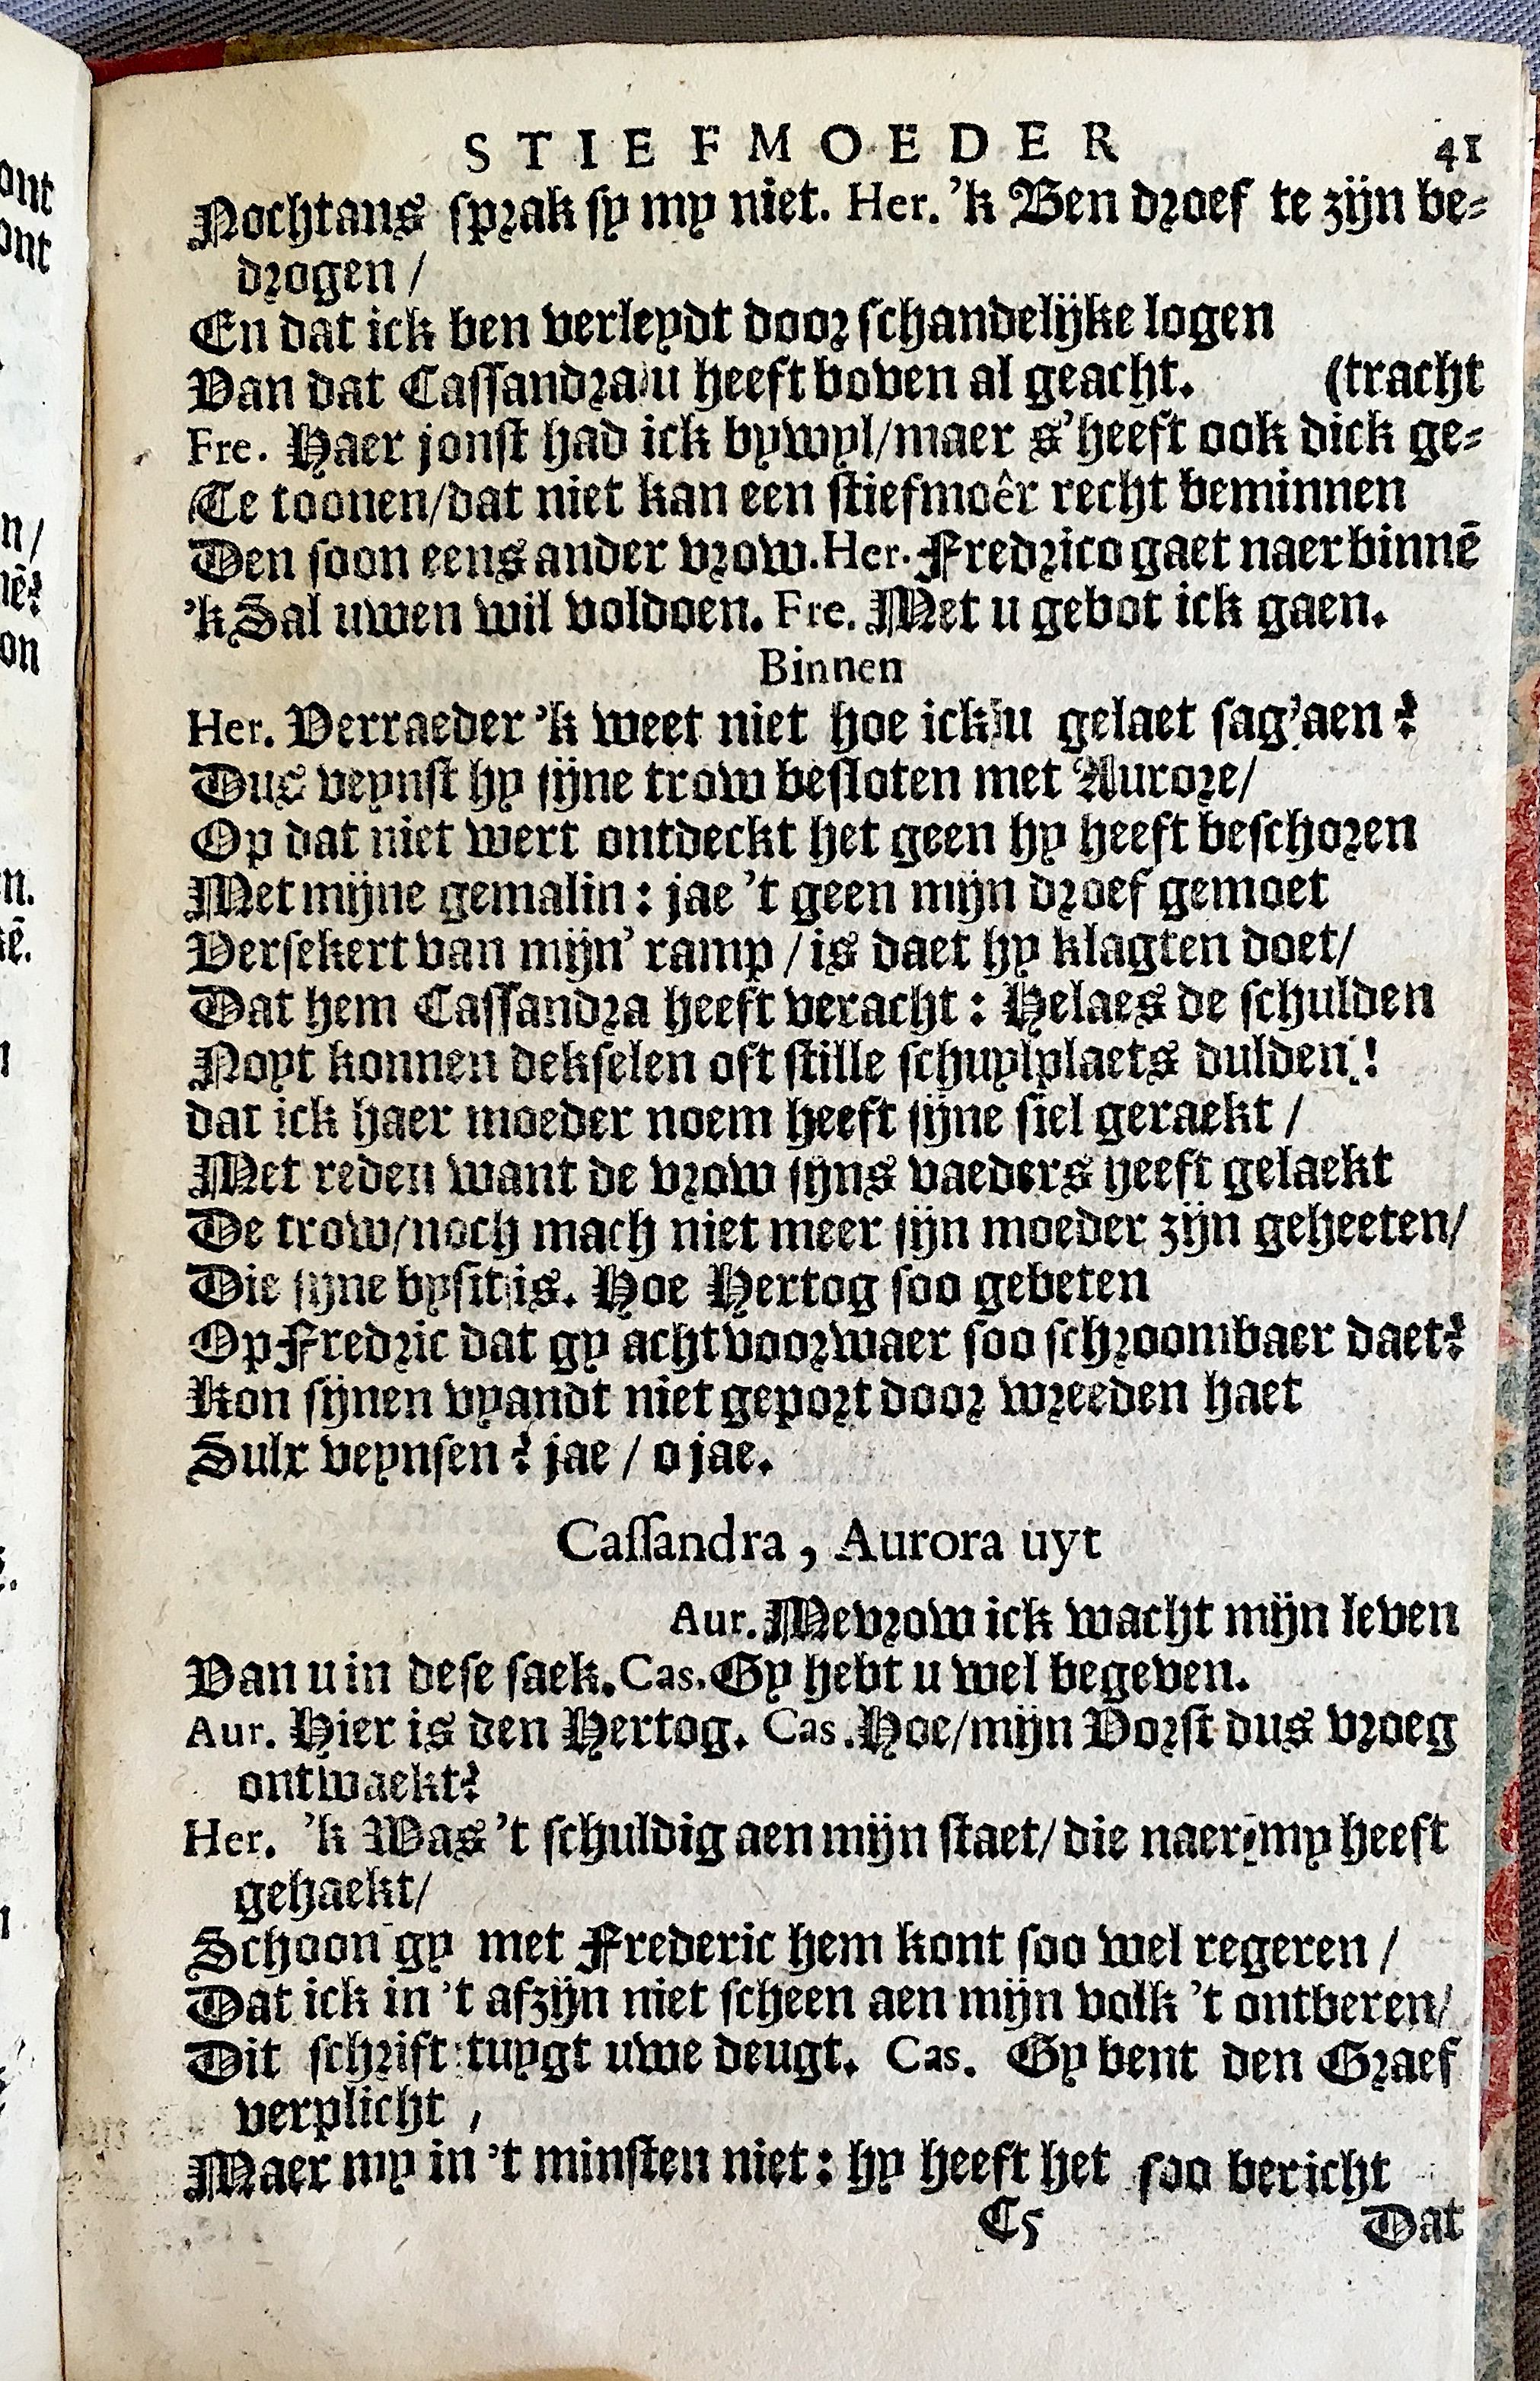 STIEFMOEDER 41
Nochtans sprak sy my niet. Her. 'k Ben droef te zijn be-
drogen /
En dat ick ben verleydt door schandelijke logen
Van dat Cassandra u heeft boven al geacht. (tracht
Fre. Haer jonst had ick bywyl/maer s'heeft ook dick ge-
Te toonen/dat niet kan een stiefmoêr recht beminnen
Den soon eens ander vrow. Her. Fredrico gaet naer binnē
'k Sal uwen wil voldoen. Fre. Met u gebot ick gaen.
Binnen
Her. Verraeder 'k weet niet hoe ick u gelaet sag'aen?
Dus veynst hy sijne trow besloten met Aurore/
Op dat niet wert ontdeckt het geen hy heeft beschoren
Met mijne gemalin: jae 't geen mijn droef gemoet
Versekert van mijn' ramp / is daet hy klagten doet/
Dat hem Cassandra heeft veracht: Helaes de schulden
Noyt konnen dekselen oft stille schuylplaets dulden!
dat ick haer moeder noem heeft sijne siel geraekt /
Met reden want de vrow sijns vaeders heeft gelaekt
De trow/noch mach niet meer sijn moeder zijn geheeten/
Die sijne bysit is. Hoe Hertog soo gebeten
Op Fredric dat gy acht voorwaer soo schroombaer daet?
Kon sijnen vyandt niet geport door wreeden haet
Sulx veynsen? jae / o jae.
Cassandra, Aurora uyt
Aur. Mevrow ick wacht mijn leven
Van u in dese saek. Cas. Gy hebt u wel begeven.
Aur. Hier is den Hertog. Cas. Hoe/mijn Vorst dus vroeg
ontwaekt?
Her. 'k Was 't schuldig aen mijn staet/ die naer my heeft
gehaekt/
Schoon gy met Frederic hem kont soo wel regeren /
Dat ick in 't afzijn niet scheen aen mijn volk 't ontberen/
Dit schrift tuygt uwe deugt. Cas. Gy bent den Graef
verplicht,
Maer my in 't minsten niet: hy heeft het soo bericht
C5 Dat